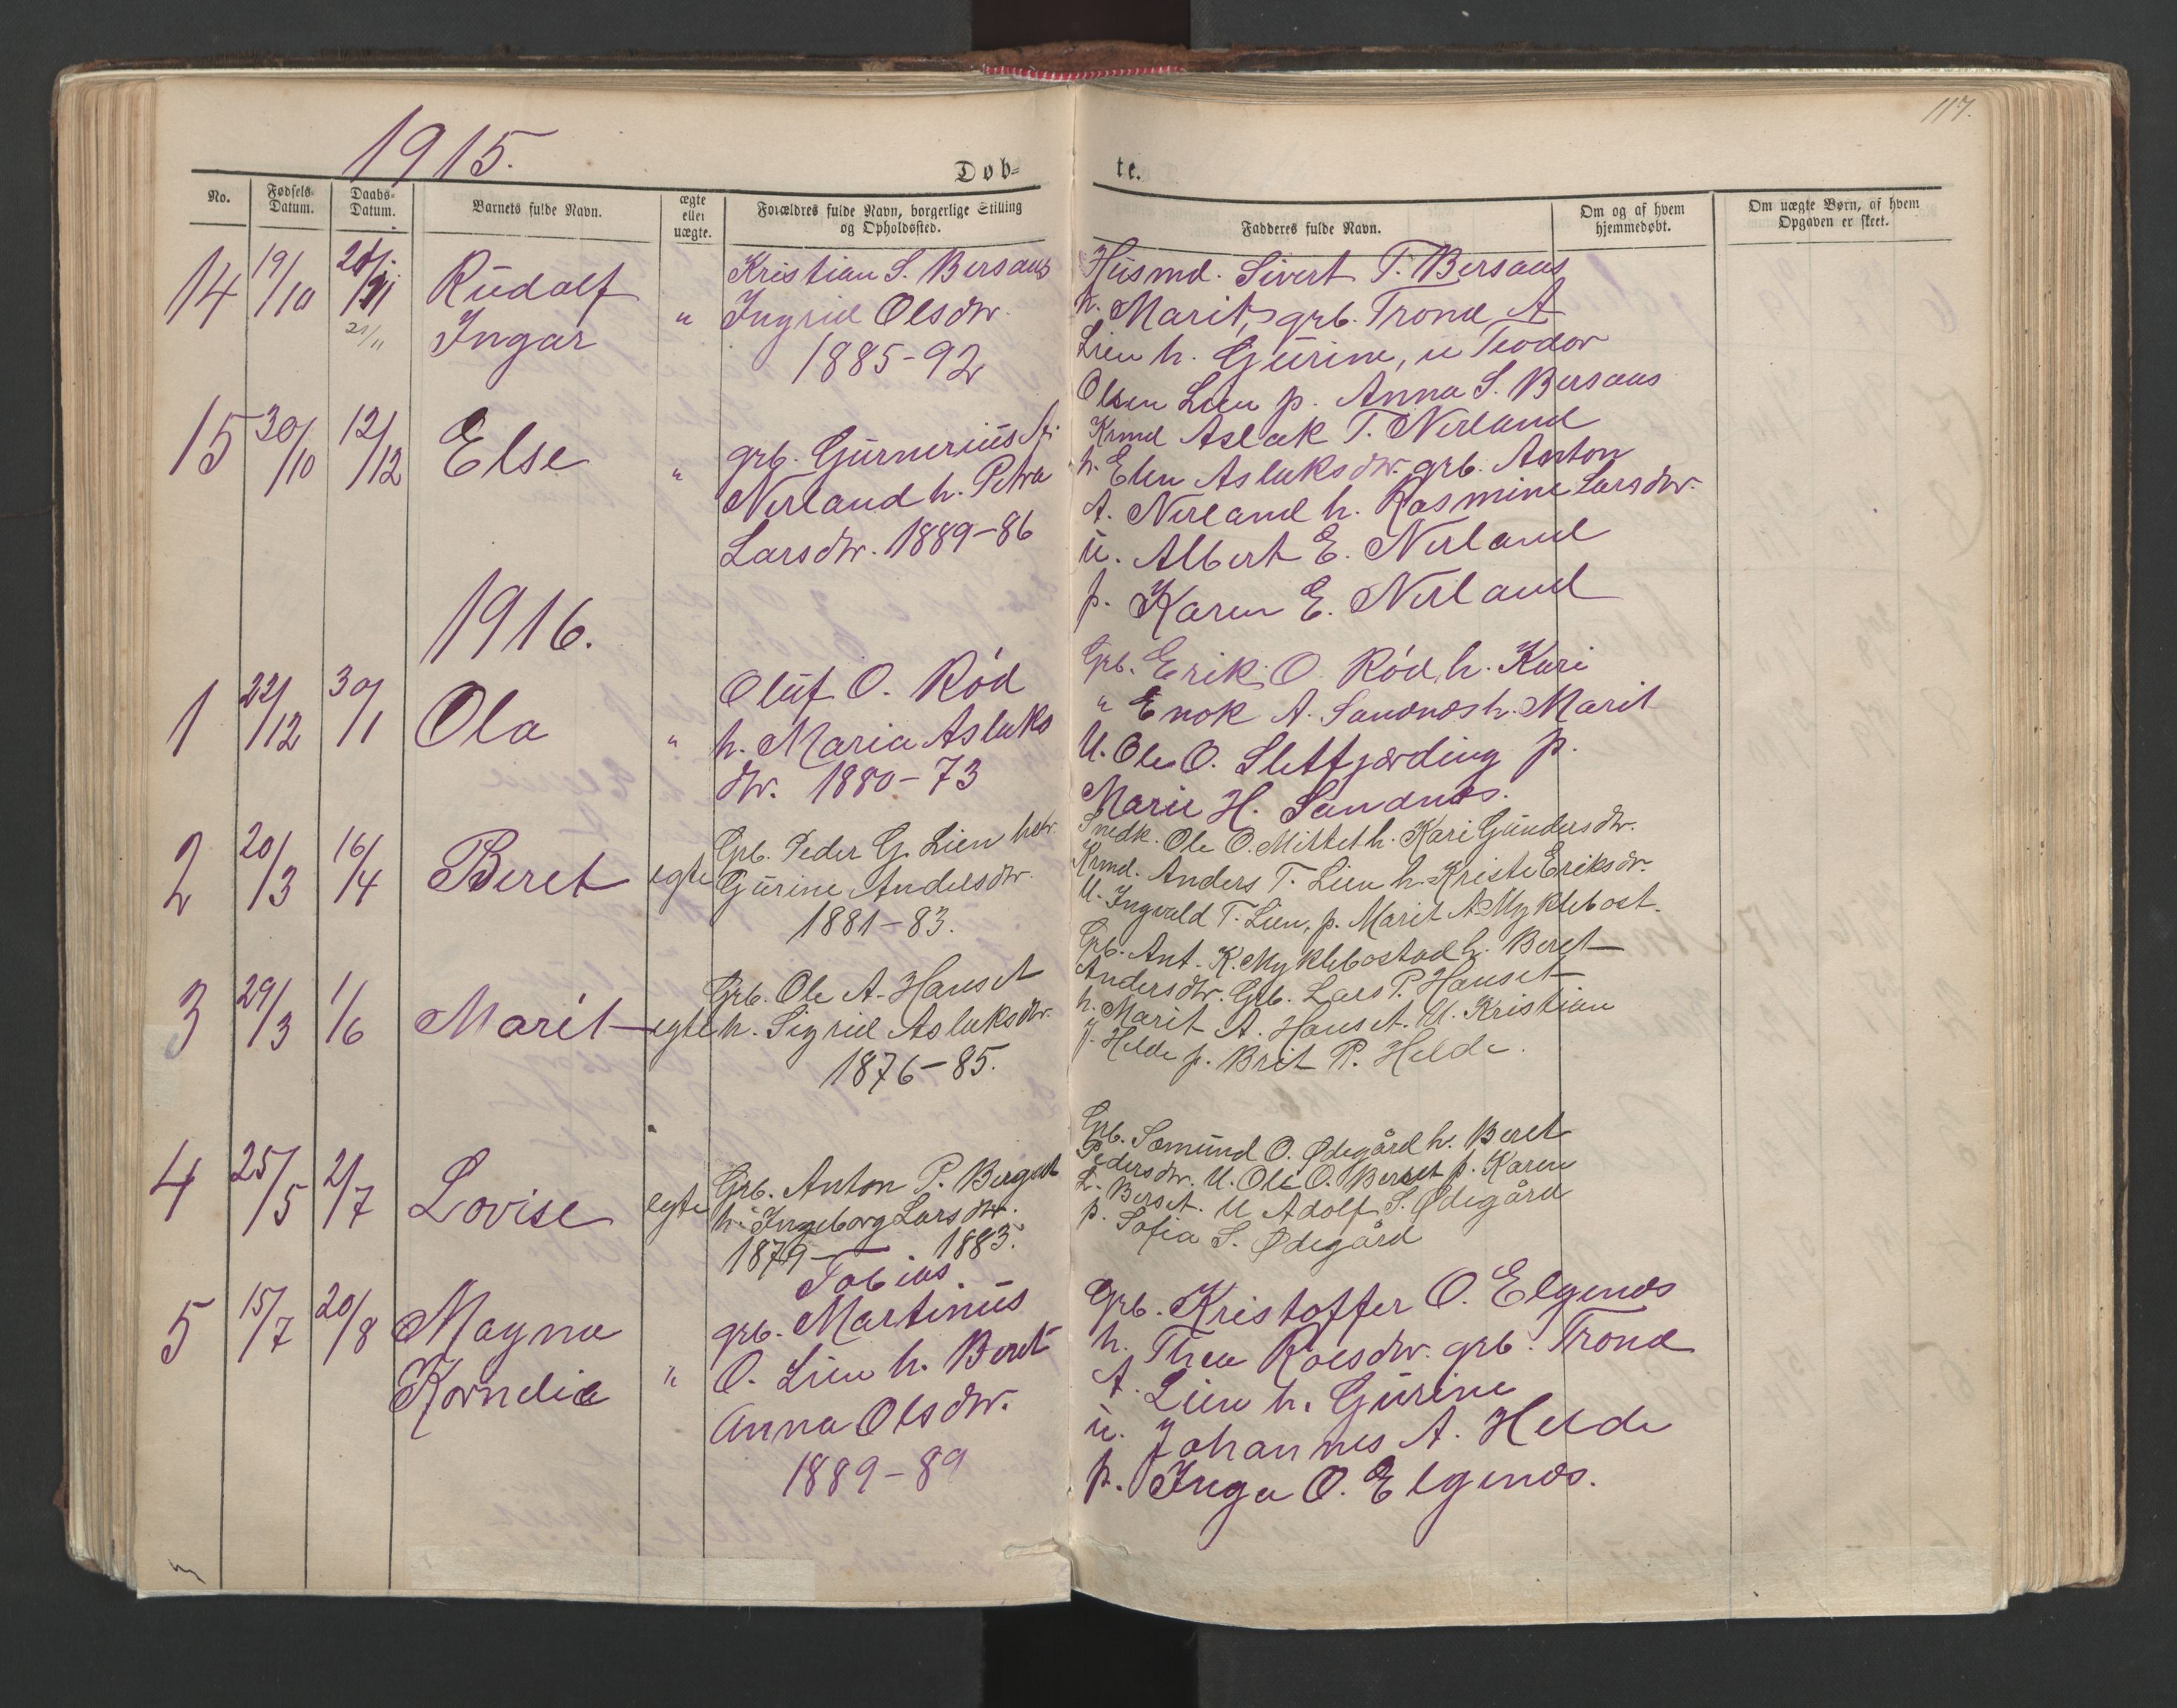 117.
1915.
Døb-
te.
No.
Fødsels-
Datum.
Daabs-
Datum.
Barnets fulde Navn.
ægte
eller
uægte.
Forældres fulde Navn, borgerlige Stilling
og Opholdssted.
Fadderes fulde Navn.
Om og af hvem
hjemmedøbt.
Om uægte Børn, af hvem
Opgaven er skeet.
14 19/10 21/11 Rudolf
21/11
Ingar
"
Kristian S. Bersaas
Ingrid Olsdtr.
1885-92
Husmd. Sivert T. Bersaas
h. Marit, grb. Trond A
Lien h. Gurine, u Teodor
Olsen Lien p. Anna S. Bersaas
15 30/10 12/12 Else
"
grb. Gurnerius A.
Nerland h. Petra
Larsdtr. 1889-86
Krmd Aslak T. Nerland
h. Elen Aslaksdtr. grb. Anton
A. Nerland h. Rasmine Larsdtr.
u. Albert E. Nerland
p. Karen E. Nerland
1916.
1 22/12 30/1 Ola
"
Oluf O. Rød
h. Maria Aslaks
dtr. 1880-73
Grb. Erik O. Rød, h. Kari
" Enok A. Sandnes h. Marit
U. Ole O. Sletfjærding p.
Marie H. Sandnes.
2 20/3 16/4 Beret
egte
Grb. Peder G. Lien hstr.
Gurine Andersdtr.
1881-83.
Snedk. Ole O. Mittet h. Kari Gundersdtr.
Krmd. Anders T. Lien h. Kristi Eriksdtr.
U. Ingvald T. Lien, p. Marit A Myklebost.
3 29/3 1/6 Marit
egte
Grb. Ole A. Hauset
h. Sigrid Aslaksdtr.
1876-85.
Grb. Ant. K. Myklebostad h. Beret
Andersdtr. Grb. Lars P. Hauset
h. Marit A. Hauset. U. Kristian
J. Helde p. Brit P. Helde.
4 25/5 2/7 Lovise
egte
Grb. Anton P. Berset
h. Ingeborg Larsdtr.
1879- 1883.
Grb. Somund O. Ødegård h. Beret
Pedersdtr. U. Ole O. Berset p. Karen
L. Berset. U Adolf S. Ødegård
p. Sofia S. Ødegård
5 15/7 20/8 Magna
Kornelia
"
Tobias.
grb. Martinus
O. Lien h. Beret
Anna Olsdtr.
1889-89
Grb. Kristoffer O. Elgenes
h. Thea Roesdtr. grb. Trond
A. Lien h. Gurine
u. Johannes A. Helde
p. Inga O. Elgenes.